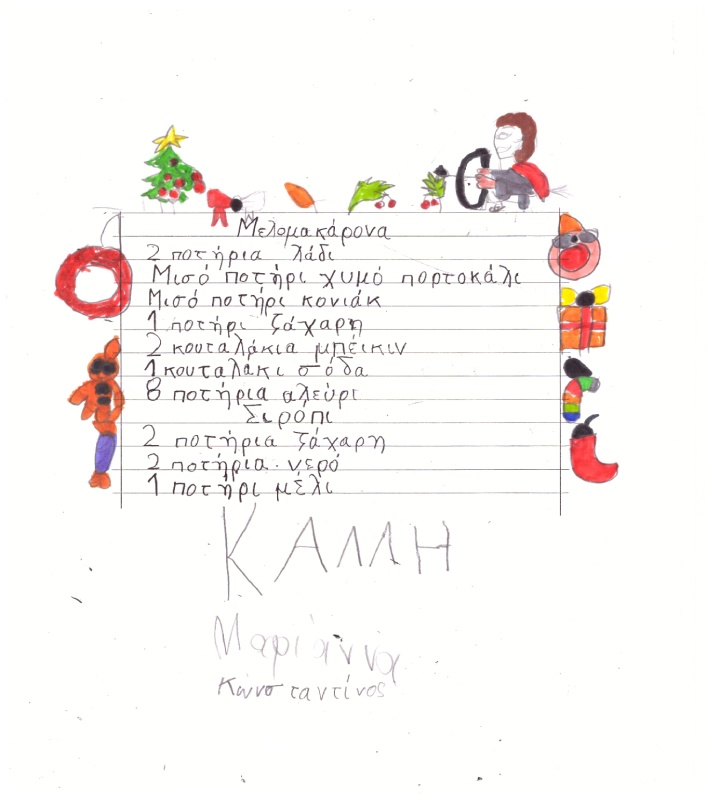 Μελομακάρονα
2 ποτήρια λάδι
Μισό ποτήρι χυμό πορτοκάλι
Μισό ποτήρι κονιάκ
1 ποτήρι ζάχαρη
2 κουταλάκια μπέικιν
1 κουταλάκι σόδα
8 ποτήρια αλεύρι
Σιρόπι
2 ποτήρια ζάχαρη
2 ποτήρια νερό
1 ποτήρι μέλι
ΚΑΛΛΗ
Μαριάννα
Κωνσταντίνος